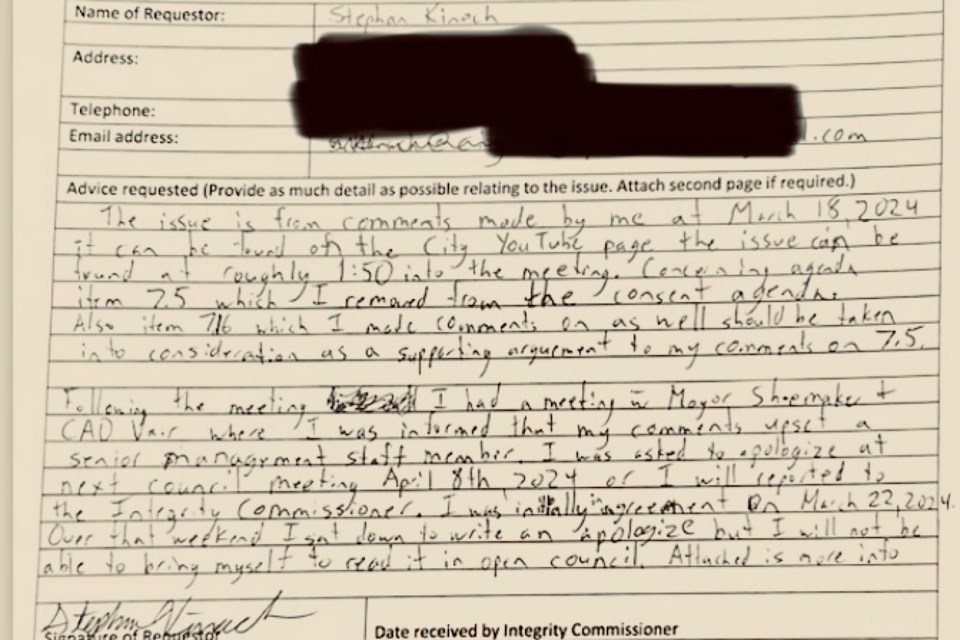 Name of Requestor: Stephan Kinach
Address:
Telephone:
Email address: .com
Advice requested (Provide as much detail as possible relating to the issue. Attach second page if required.)
The issue is from comments made by me at March 18, 2024
it can be found on the City YouTube page the issue can be
found at roughly 1:50 into the meeting. Concerning agenda
item 7.5 which I removed from the consent agenda.
Also item 7.16 which I made comments on as well should be taken
into consideration as a supporting arguement to my comments on 7.5.
Following the meeting I had a meeting w Mayor Shoemaker +
CAO Vair where I was informed that my comments upset a
senior management staff member. I was asked to apologize at
next council meeting April 8th, 2024 or I will reported to
the Integrity Commissioner. I was initially in agreement on March 22, 2024.
Over that weekend I sat down to write an apologize but I will not be
able to bring myself to read it in open council. Attached is more info
Signature of Requestor
Date received by Integrity Commissioner